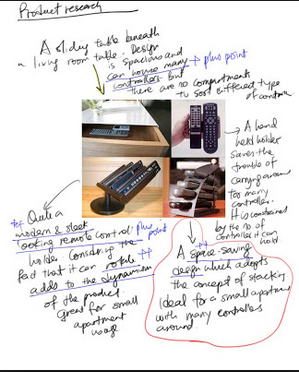 Product research
A sliding table beneath
a living room table. Design
is spacious and
can house many → plus point
controllers but
there are no compartments
to sort different type
of control
A hand
held holder
saves the
trouble of
carrying around
too many
controller.
It is constrained
by the no of
controller it can
hold
** Quite a
modern & sleek
looking remote control plus point
holder. Considering the
fact that it can rotate ++
adds to the dynamism
of the product
great for small
apartment
usage
++
A space-saving
design which adopts
the concept of stacking
Ideal for a small apartment
with many controllers
around.